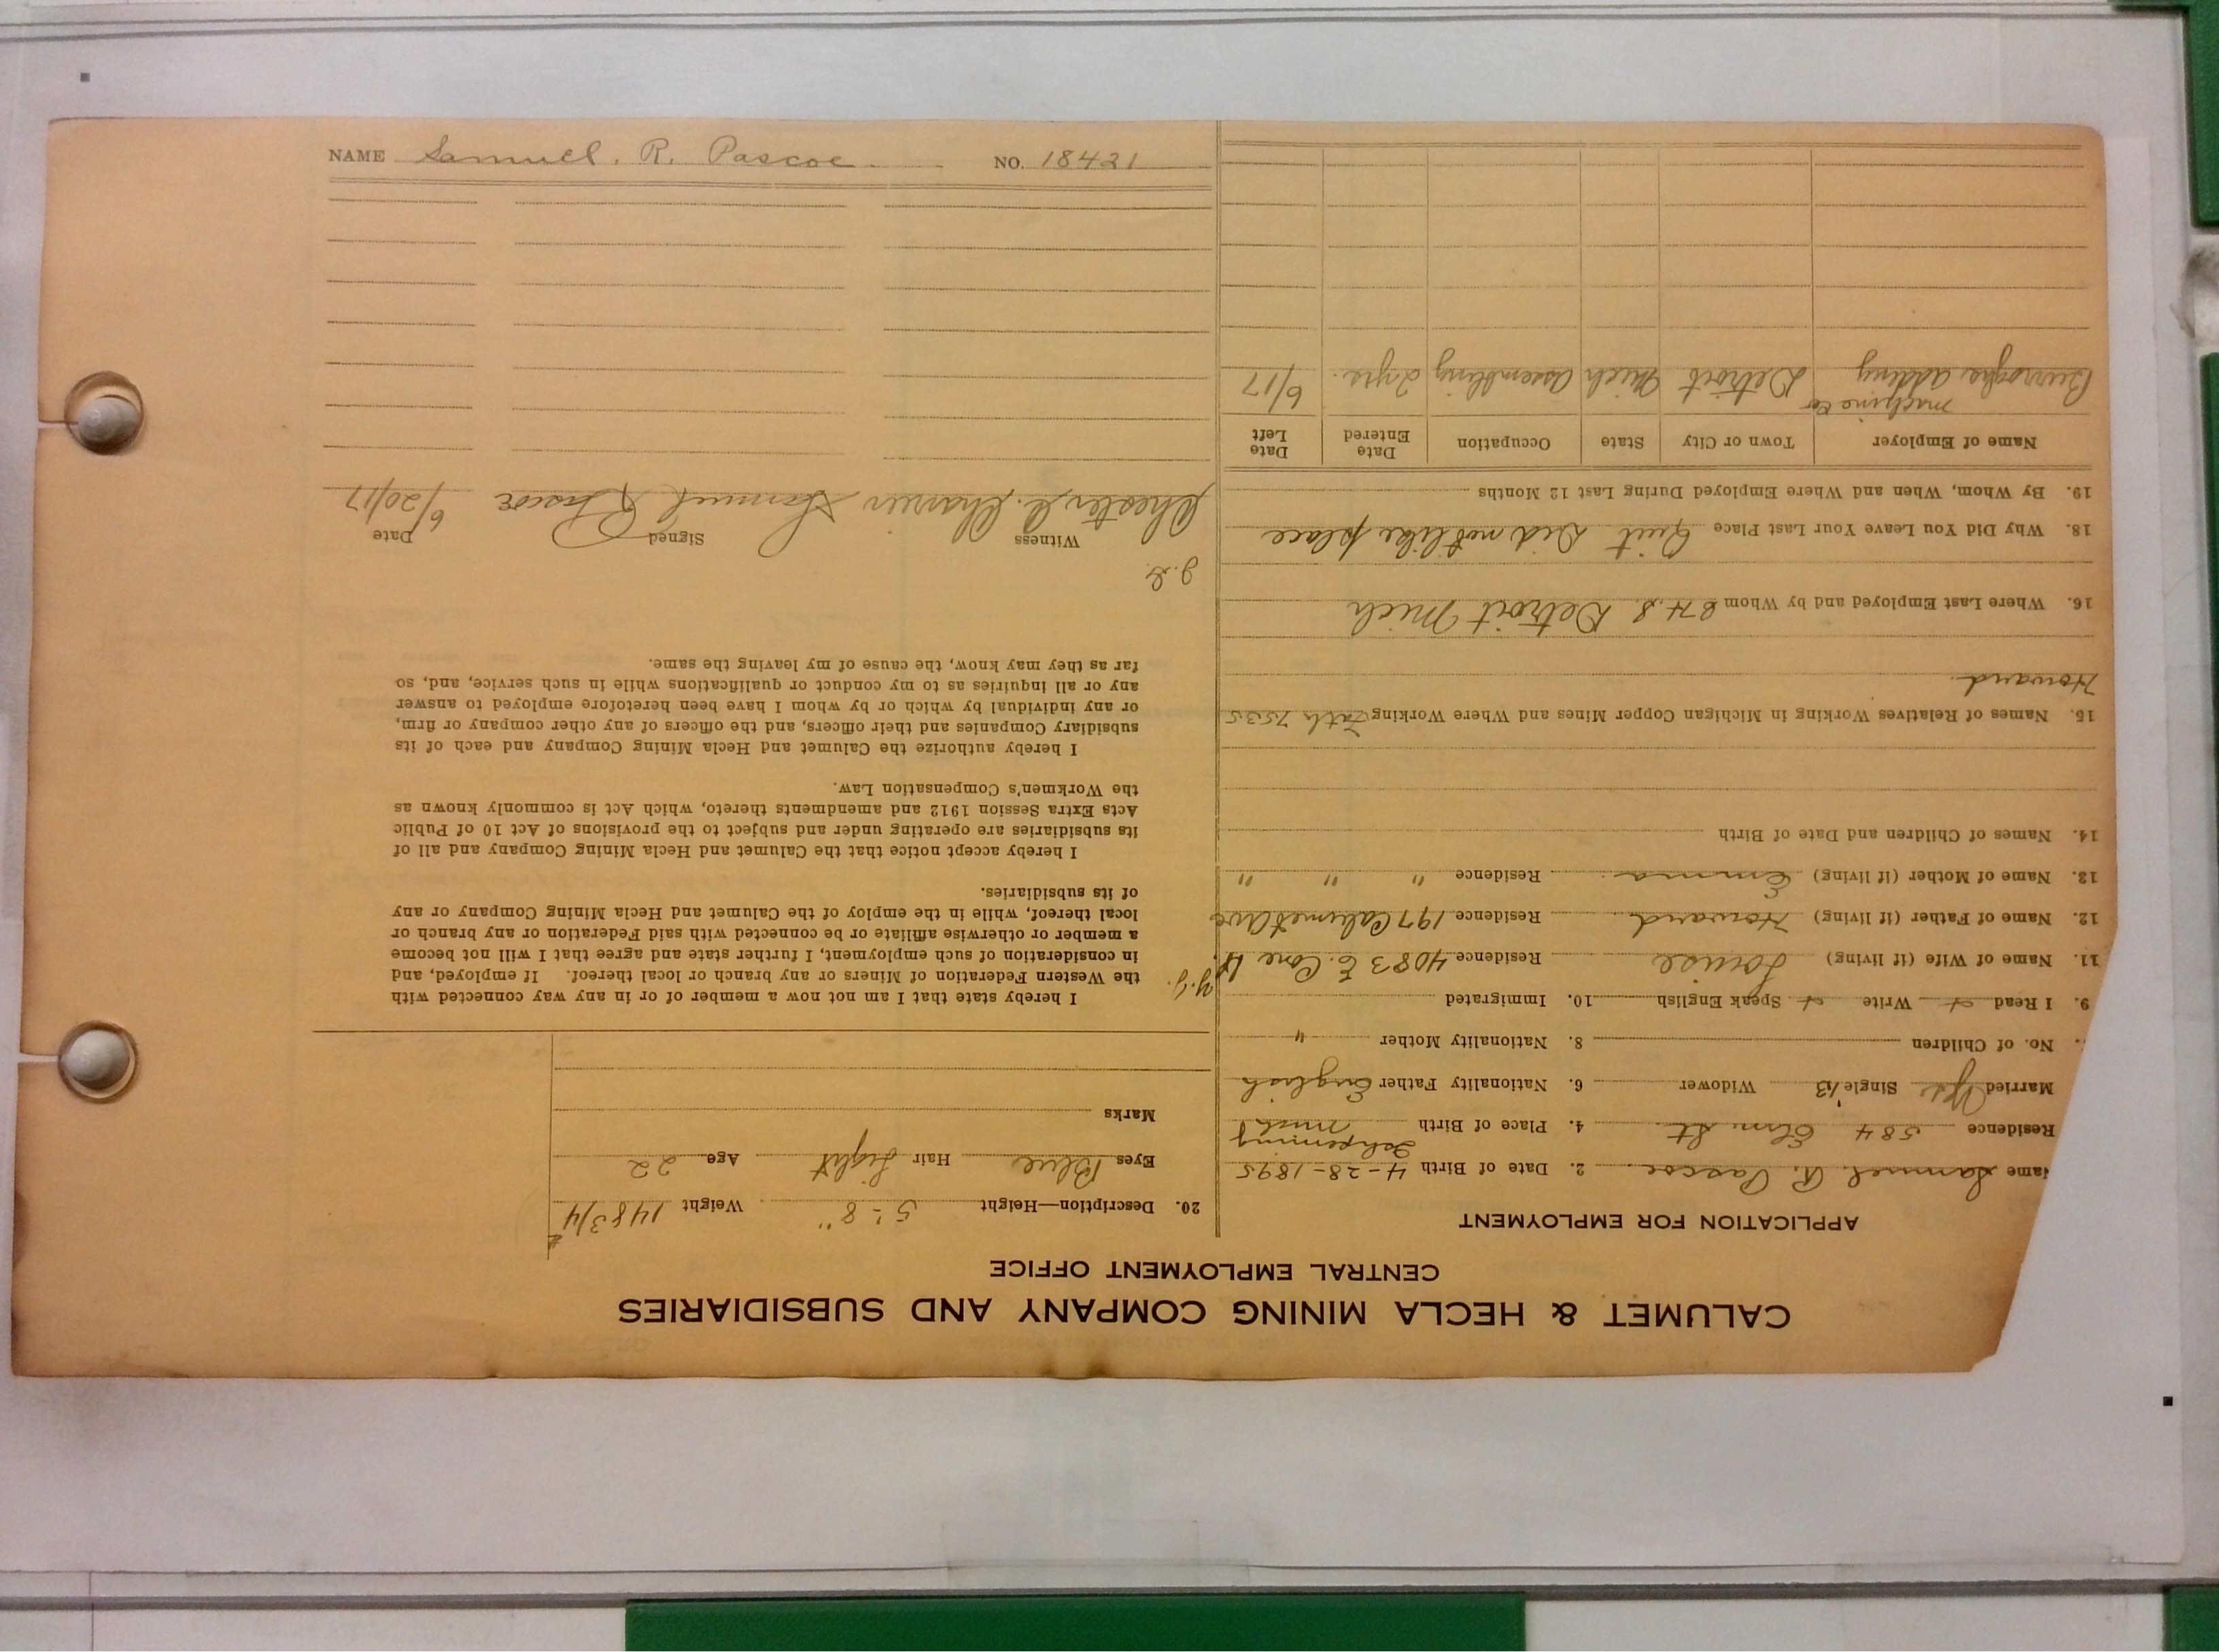 NAME Samuel. R. Pascoe. NO. 18421
CALUMET & HECLA MINING COMPANY AND SUBSIDIARIES
CENTRAL EMPLOYMENT OFFICE
APPLICATION FOR EMPLOYMENT
Name Samuel. R. Pascoe. 2. Date of Birth 4-28-1895
Residence 584 Elm St. 4. Place of Birth Ishpeming Mich
Married Yes Single '13 Widower 6. Nationality Father English
No. of Children 8. Nationality Mother "
9. I Read Write Speak English 10. Immigrated
11. Name of Wife (if living) Louise Residence 4083 E. Cone
12. Name of Father (if living) Howard Residence 197 Calumet Ave
13. Name of Mother (if living) Emma. Residence " " "
14. Names of Children and Date of Birth
15. Names of Relatives Working in Michigan Copper Mines and Where Working Fath 7535
Howard.
16. Where Last Employed and by Whom Detroit Mich
18. Why Did You Leave Your Last Place Quit Did not like place
19. By Whom, When and Where Employed During Last 12 Months
Name of Employer Town or City State Occupation Date Entered Date Left
Burroughs adding machine Co Detroit Mich Assembling 2 yrs. 6/17
20. Description—Height 5'-8" Weight 148 3/4
Eyes Blue Hair Light Age 22
Marks
I hereby state that I am not now a member of or in any way connected with
the Western Federation of Miners or any branch or local thereof. If employed, and
in consideration of such employment, I further state and agree that I will not become
a member or otherwise affiliate or be connected with said Federation or any branch or
local thereof, while in the employ of the Calumet and Hecla Mining Company or any
of its subsidiaries.
I hereby accept notice that the Calumet and Hecla Mining Company and all of
its subsidiaries are operating under and subject to the provisions of Act 10 of Public
Acts Extra Session 1912 and amendments thereto, which Act is commonly known as
the Workmen's Compensation Law.
I hereby authorize the Calumet and Hecla Mining Company and each of its
subsidiary Companies and their officers, and the officers of any other company or firm,
or any individual by which or by whom I have been heretofore employed to answer
any or all inquiries as to my conduct or qualifications while in such service, and, so
far as they may know, the cause of my leaving the same.
Witness Signed Date
Chester Samuel R Pascoe 6/20/17